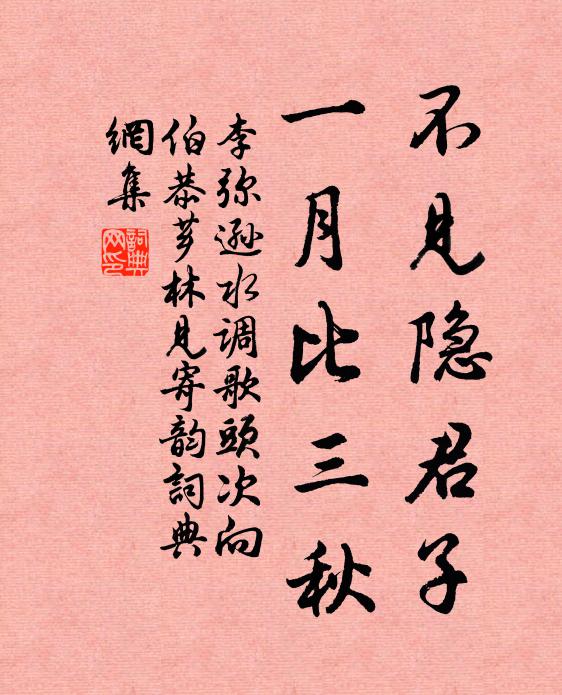 不见隐君子
一月比三秋
李弥逊水调歌頭次向
伯恭芗林见寄韵詞典
網集
詞典
网印